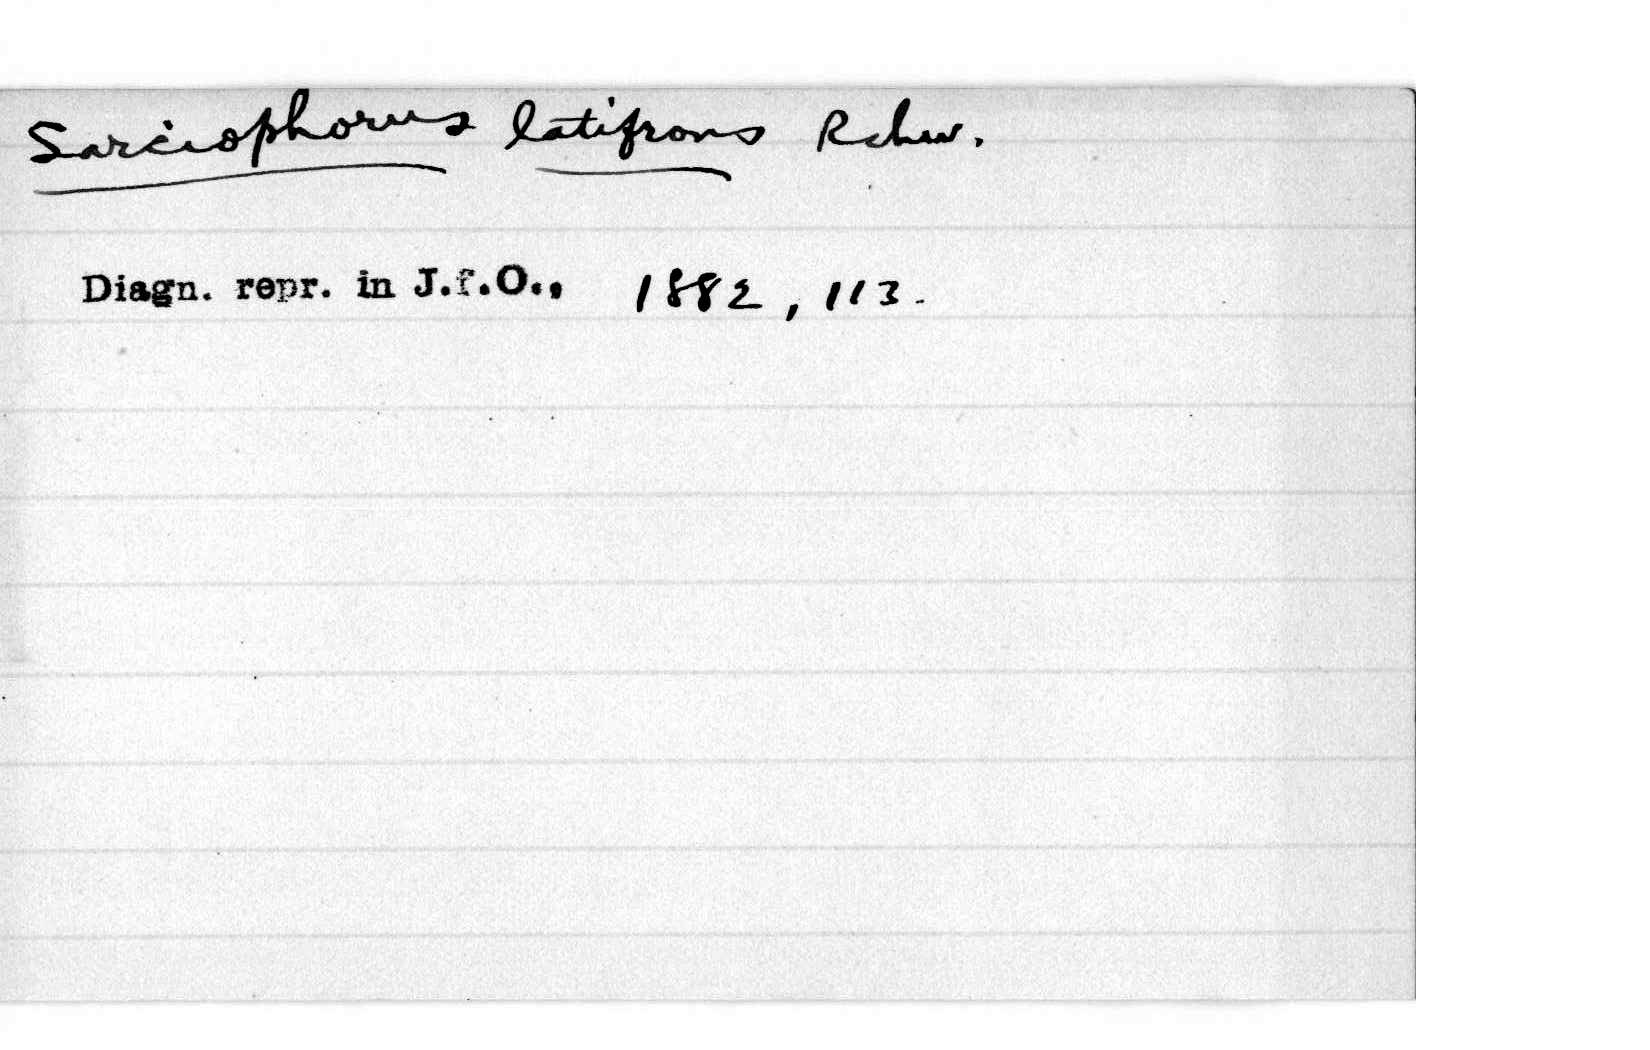 Sarciophorus latifrons Rchw.
Diagn. repr. in J.f.O., 1882, 113.